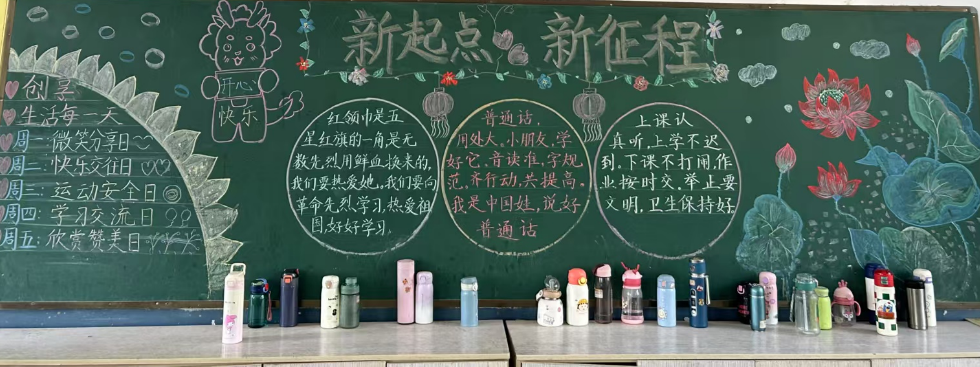 新起点 新征程
开心
快乐
创享
生活每一天
周一:微笑分享日
周二:快乐交往日
周三:运动安全日
周四:学习交流日
周五:欣赏赞美日
红领巾是五
星红旗的一角,是无
数先烈用鲜血换来的,
我们要热爱她,我们要向
革命先烈学习,热爱祖
国,好好学习。
普通话,
用处大。小朋友,学
好它。音读准,字规
范,齐行动,共提高。
我是中国娃,说好
普通话
上课认
真听,上学不迟
到,下课不打闹,作
业按时交,举止要
文明,卫生保持好